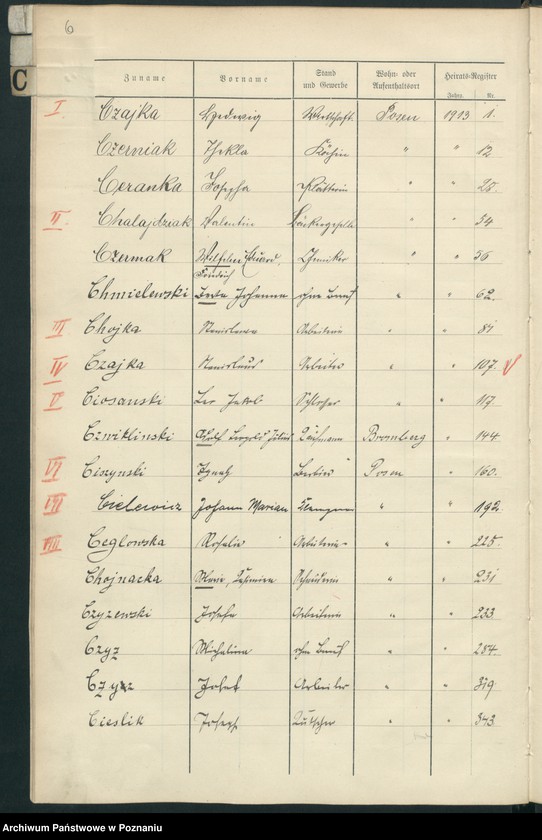 6
C
Zuname Vorname Stand und Gewerbe Wohn- oder Aufenthaltsort Heirats-Register
Jahrg. Nr.
I. Czajka Hedwig Wirtschaft. Posen 1913 1.
Czerniak Thekla Köchin " " 12
Ceranka Sophia Plätterin " " 28.
II. Chalajdziak Valentin Bäckergeselle " " 34
Czermak Wilhelm Eduard Friedrich Chemiker " " 56
Chmielewski Johanna ohne Beruf " " 62.
III Chojka Stanislawa Arbeiterin " " 81
IV Czajka Stanislaus Arbeiter " " 107.
V Ciosanski Leo Jakob Schlosser " " 117
Czwiklinski Adolf Leopold Julius Kaufmann Bromberg " 144
VI Ciszynski Ignatz Posen " 160.
VII Cielewicz Johann Marian Klempner " " 192.
VIII Ceglowska Rosalie Arbeiterin " " 225.
Chojnacka Marie, Kasimira Schneiderin " " 231
Czyzewski Josefa Arbeiterin " " 233.
Czyz Michalina ohne Beruf " " 284.
Czyz Josef Arbeiter " " 319
Cieslik Joseph Kutscher " " 343.
Archiwum Państwowe w Poznaniu